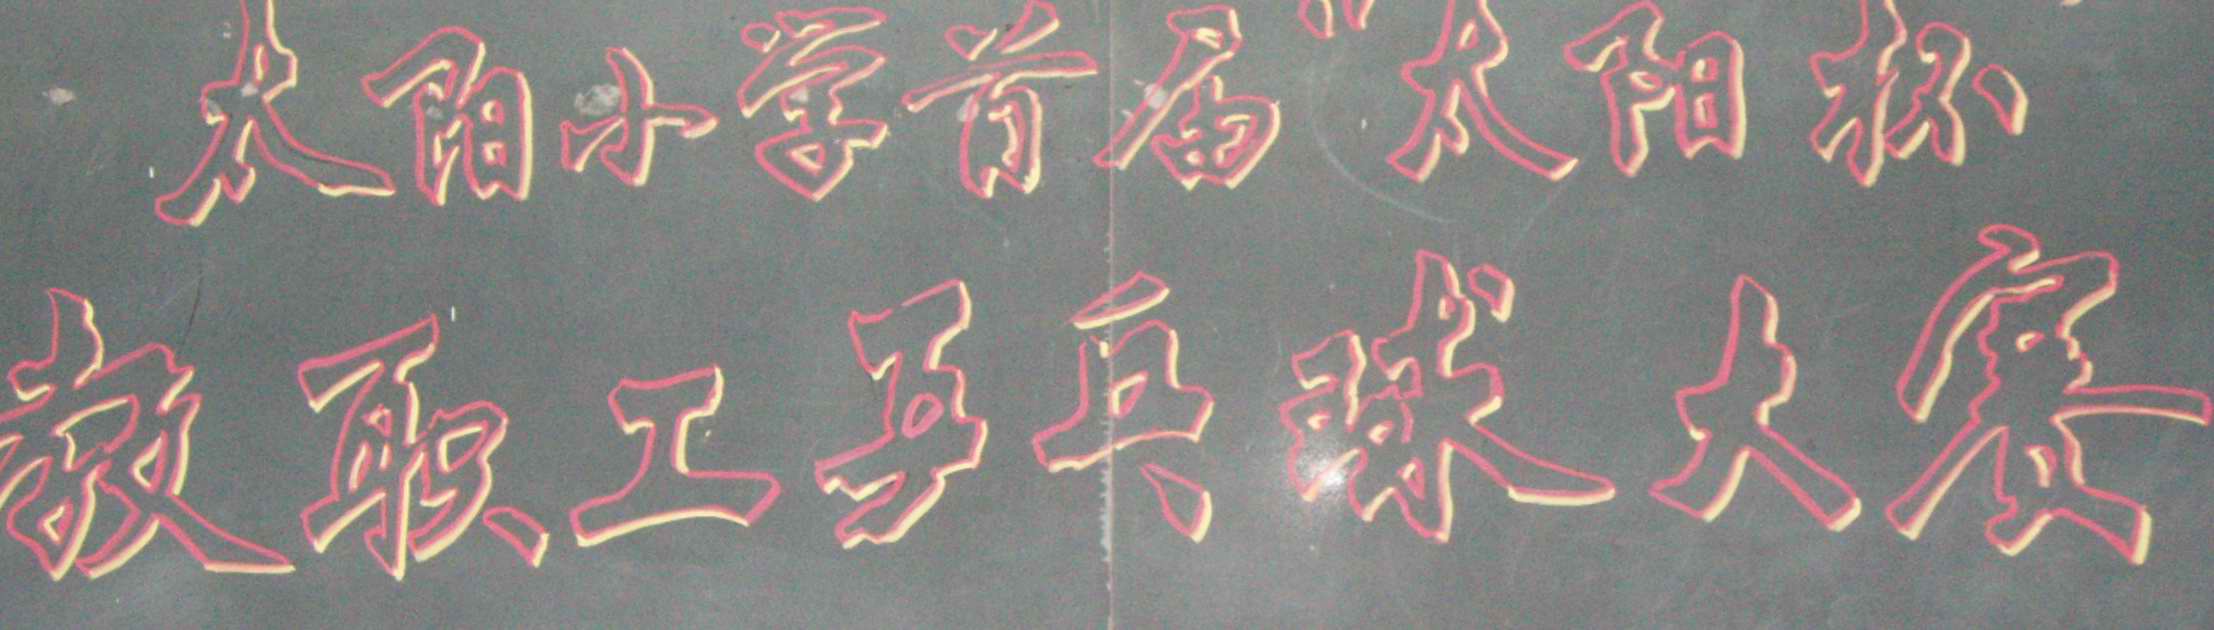 太阳小学首届“太阳杯
教职工乒乓球大赛